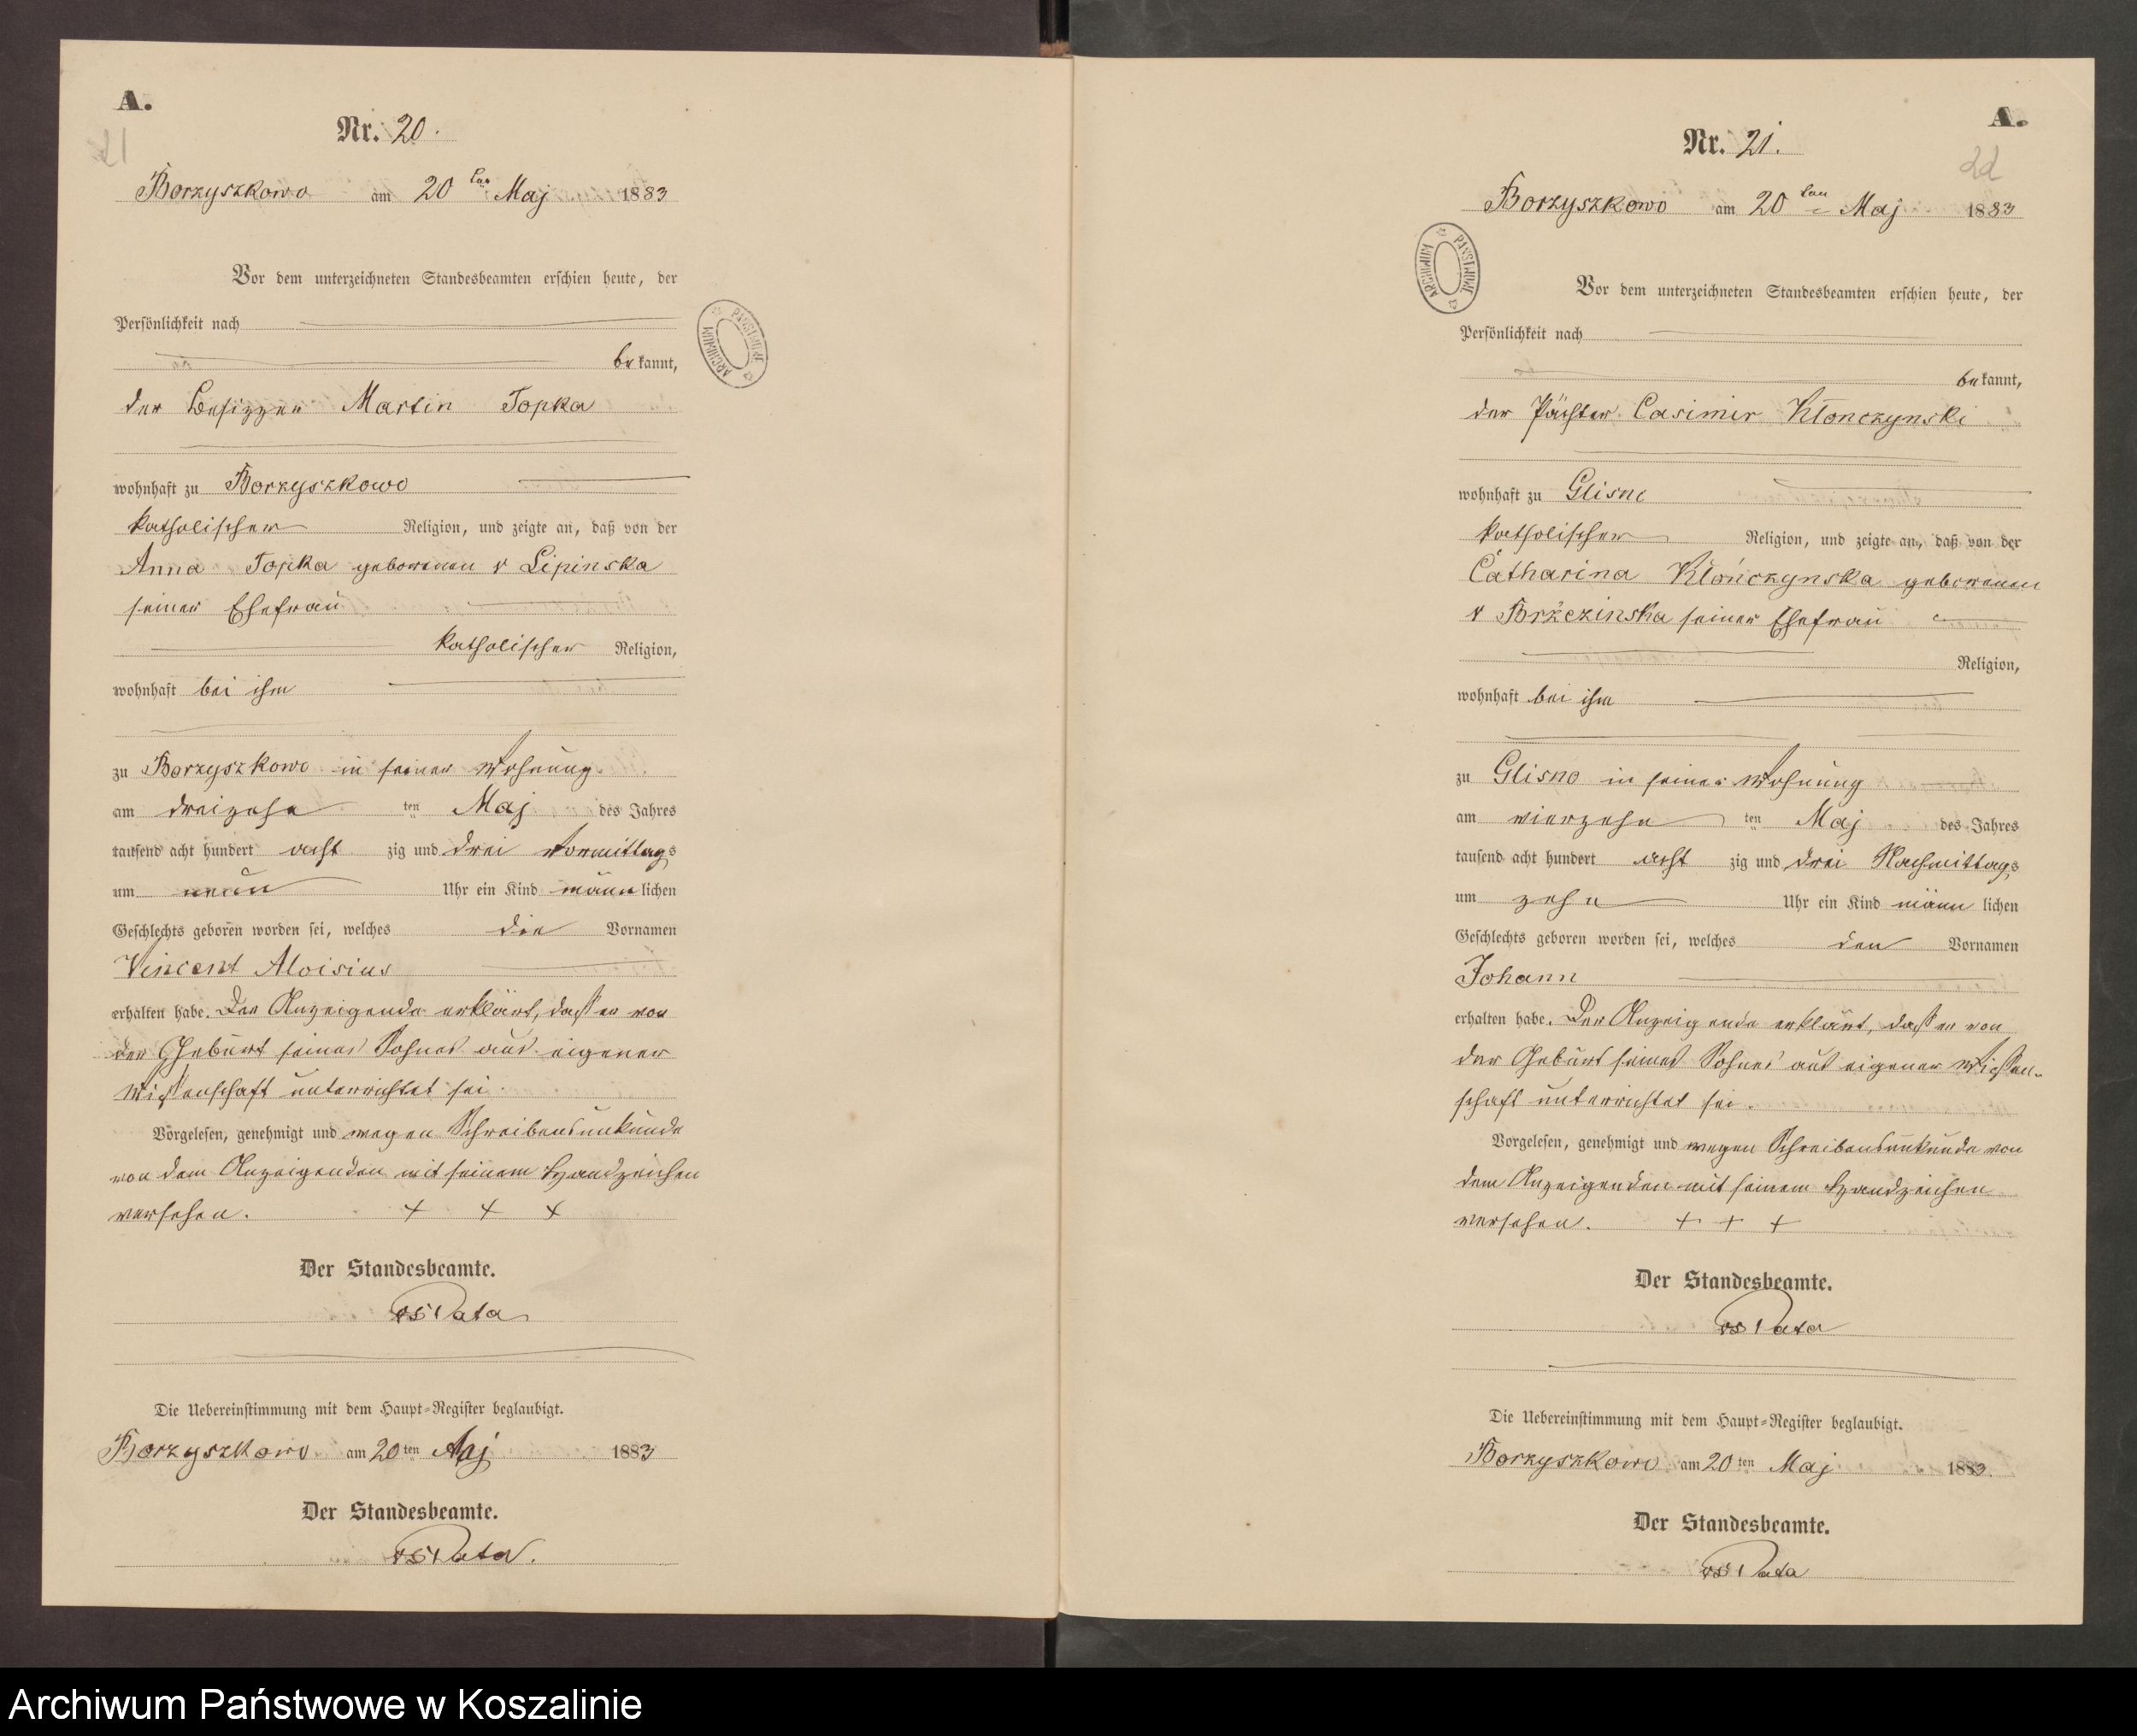 A.
21
Nr. 20.
Borzyszkowo am 20ten Maj 1883
Vor dem unterzeichneten Standesbeamten erschien heute, der
Persönlichkeit nach
be kannt,
der Besizzer Martin Topka
wohnhaft zu Borzyszkowo
katholischer Religion, und zeigte an, daß von der
Anna Topka geborenen v Lipinska
seiner Ehefrau
katholischer Religion,
wohnhaft bei ihm
zu Borzyszkowo in seiner Wohnung
am dreizehn ten Maj des Jahres
tausend acht hundert acht zig und drei Vormittags
um neun Uhr ein Kind männlichen
Geschlechts geboren worden sei, welches die Vornamen
Vincent Aloisius
erhalten habe. Der Anzeigende erklärt, dass er von
der Geburt seines Sohnes aus eigener
Wissenschaft unterrichtet sei.
Vorgelesen, genehmigt und wegen Schreibensunkunde
von dem Anzeigenden mit seinem Handzeichen
versehen. + + +
Der Standesbeamte.
Die Uebereinstimmung mit dem Haupt-Register beglaubigt.
Borzyszkowo am 20ten Maj 1883
Der Standesbeamte.
ARCHIWUM PAŃSTWOWE
A.
22
Nr. 21.
Borzyszkowo am 20ten Maj 1883
Vor dem unterzeichneten Standesbeamten erschien heute, der
Persönlichkeit nach
be kannt,
der Pächter Casimir Kłonczynski
wohnhaft zu Glisno
katholischer Religion, und zeigte an, daß von der
Catharina Kłończynska geborenen
v Brzezinska seiner Ehefrau
Religion,
wohnhaft bei ihm
zu Glisno in seiner Wohnung
am vierzehn ten Maj des Jahres
tausend acht hundert acht zig und drei Nachmittags
um zehn Uhr ein Kind männ lichen
Geschlechts geboren worden sei, welches den Vornamen
Johann
erhalten habe. Der Anzeigende erklärt, dass er von
der Geburt seines Sohnes aus eigener Wissen-
schaft unterrichtet sei.
Vorgelesen, genehmigt und wegen Schreibensunkunde von
dem Anzeigenden mit seinem Handzeichen
versehen. + + +
Der Standesbeamte.
Die Uebereinstimmung mit dem Haupt-Register beglaubigt.
Borzyszkowo am 20ten Maj 1883.
Der Standesbeamte.
ARCHIWUM PAŃSTWOWE
Archiwum Państwowe w Koszalinie